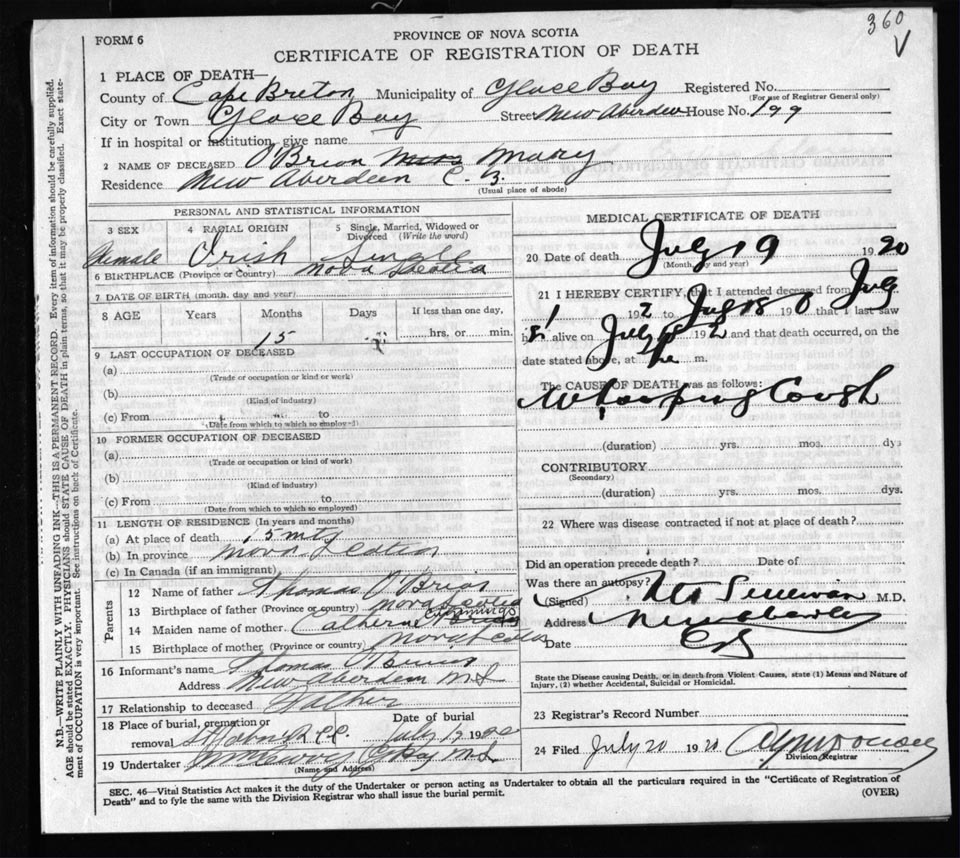 360
V
FORM 6
PROVINCE OF NOVA SCOTIA
CERTIFICATE OF REGISTRATION OF DEATH
1 PLACE OF DEATH—
County of Cape Breton Municipality of Glace Bay Registered No.
(For use of Registrar General only)
City or Town Glace Bay Street New Aberdeen House No. 199
If in hospital or institution, give name
2 NAME OF DECEASED O'Brien Mary
Residence New Aberdeen C. B.
(Usual place of abode)
PERSONAL AND STATISTICAL INFORMATION
3 SEX 4 RACIAL ORIGIN 5 Single, Married, Widowed or Divorced (Write the word)
Female Irish Single
6 BIRTHPLACE (Province or Country) Nova Scotia
7 DATE OF BIRTH (month, day and year)
8 AGE Years Months Days If less than one day,
15 hrs. or min.
9 LAST OCCUPATION OF DECEASED
(a)
(Trade or occupation or kind or work)
(b)
(Kind of industry)
(c) From to
(Date from which to which so employed)
10 FORMER OCCUPATION OF DECEASED
(a)
(Trade or occupation or kind of work)
(b)
(Kind of industry)
(c) From to
(Date from which to which so employed)
11 LENGTH OF RESIDENCE (In years and months)
(a) At place of death 15 mts
(b) In province Nova Scotia
(c) In Canada (if an immigrant)
Parents
12 Name of father Thomas O'Brien
13 Birthplace of father (Province or country) Nova Scotia
14 Maiden name of mother Catherine
15 Birthplace of mother (Province or country) Nova Scotia
16 Informant's name Thomas O'Brien
Address New Aberdeen N.S.
17 Relationship to deceased Father
18 Place of burial, cremation or removal Date of burial July 19 1920
19 Undertaker
(Name and Address)
MEDICAL CERTIFICATE OF DEATH
20 Date of death July 19 1920
(Month, day and year)
21 I HEREBY CERTIFY, that I attended deceased from July
1 192 to July 18 1920 that I last saw
h alive on July 18 192 and that death occurred, on the
date stated above, at m.
The CAUSE OF DEATH was as follows:
Whooping Cough
(duration) yrs. mos. dys
CONTRIBUTORY
(Secondary)
(duration) yrs. mos. dys.
22 Where was disease contracted if not at place of death?
Did an operation precede death? Date of
Was there an autopsy?
(Signed) Sullivan M.D.
Address New Aberdeen
Date C B
State the Disease causing Death, or in death from Violent Causes, state (1) Means and Nature of
Injury, (2) whether Accidental, Suicidal or Homicidal.
23 Registrar's Record Number
24 Filed July 20 1920
Division Registrar
SEC. 46—Vital Statistics Act makes it duty of the Undertaker or person acting as Undertaker to obtain all the particulars required in the "Certificate of Registration of
Death" and to fyle the same with the Division Registrar who shall issue the burial permit.
(OVER)
N.B.—WRITE PLAINLY WITH UNFADING INK—THIS IS A PERMANENT RECORD. Every item of information should be carefully supplied.
AGE should be stated EXACTLY. PHYSICIANS should STATE CAUSE OF DEATH in plain terms, so that it may be properly classified. Exact state-
ment of OCCUPATION is very important. See instructions on back of Certificate.